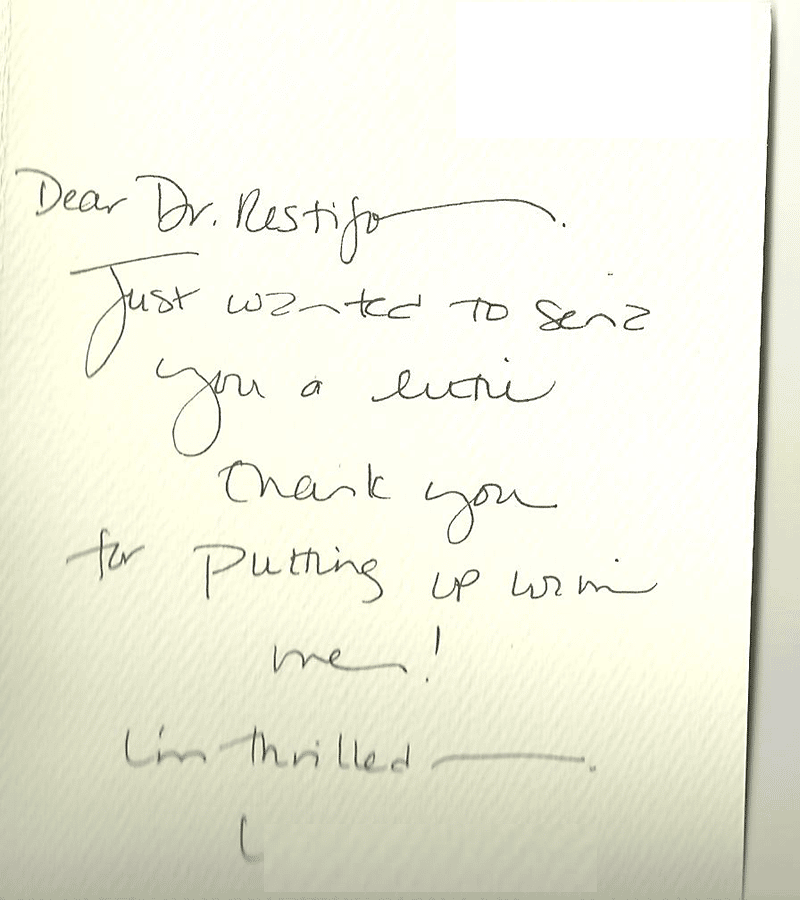 Dear Dr. Restifo —.
Just wanted to send
you a little
thank you
for putting up with
me!
I'm thrilled —.